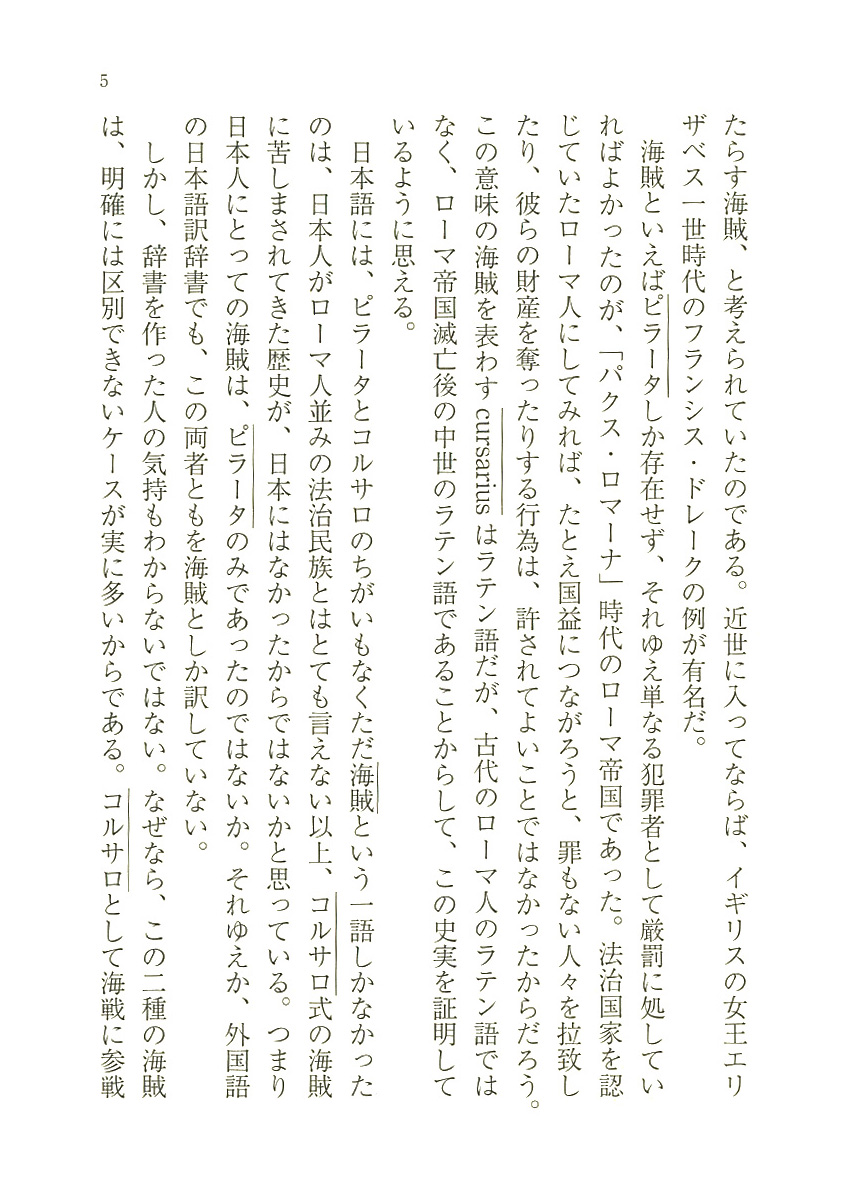 5
たらす海賊、と考えられていたのである。近世に入ってならば、イギリスの女王エリ
ザベス一世時代のフランシス・ドレークの例が有名だ。
海賊といえばピラータしか存在せず、それゆえ単なる犯罪者として厳罰に処してい
ればよかったのが、「パクス・ロマーナ」時代のローマ帝国であった。法治国家を認
じていたローマ人にしてみれば、たとえ国益につながろうと、罪もない人々を拉致し
たり、彼らの財産を奪ったりする行為は、許されてよいことではなかったからだろう。
この意味の海賊を表わす cursarius はラテン語だが、古代のローマ人のラテン語では
なく、ローマ帝国滅亡後の中世のラテン語であることからして、この史実を証明して
いるように思える。
日本語には、ピラータとコルサロのちがいもなくただ海賊という一語しかなかった
のは、日本人がローマ人並みの法治民族とはとても言えない以上、コルサロ式の海賊
に苦しまされてきた歴史が、日本にはなかったからではないかと思っている。つまり
日本人にとっての海賊は、ピラータのみであったのではないか。それゆえか、外国語
の日本語訳辞書でも、この両者ともを海賊としか訳していない。
しかし、辞書を作った人の気持もわからないではない。なぜなら、この二種の海賊
は、明確には区別できないケースが実に多いからである。コルサロとして海戦に参戦